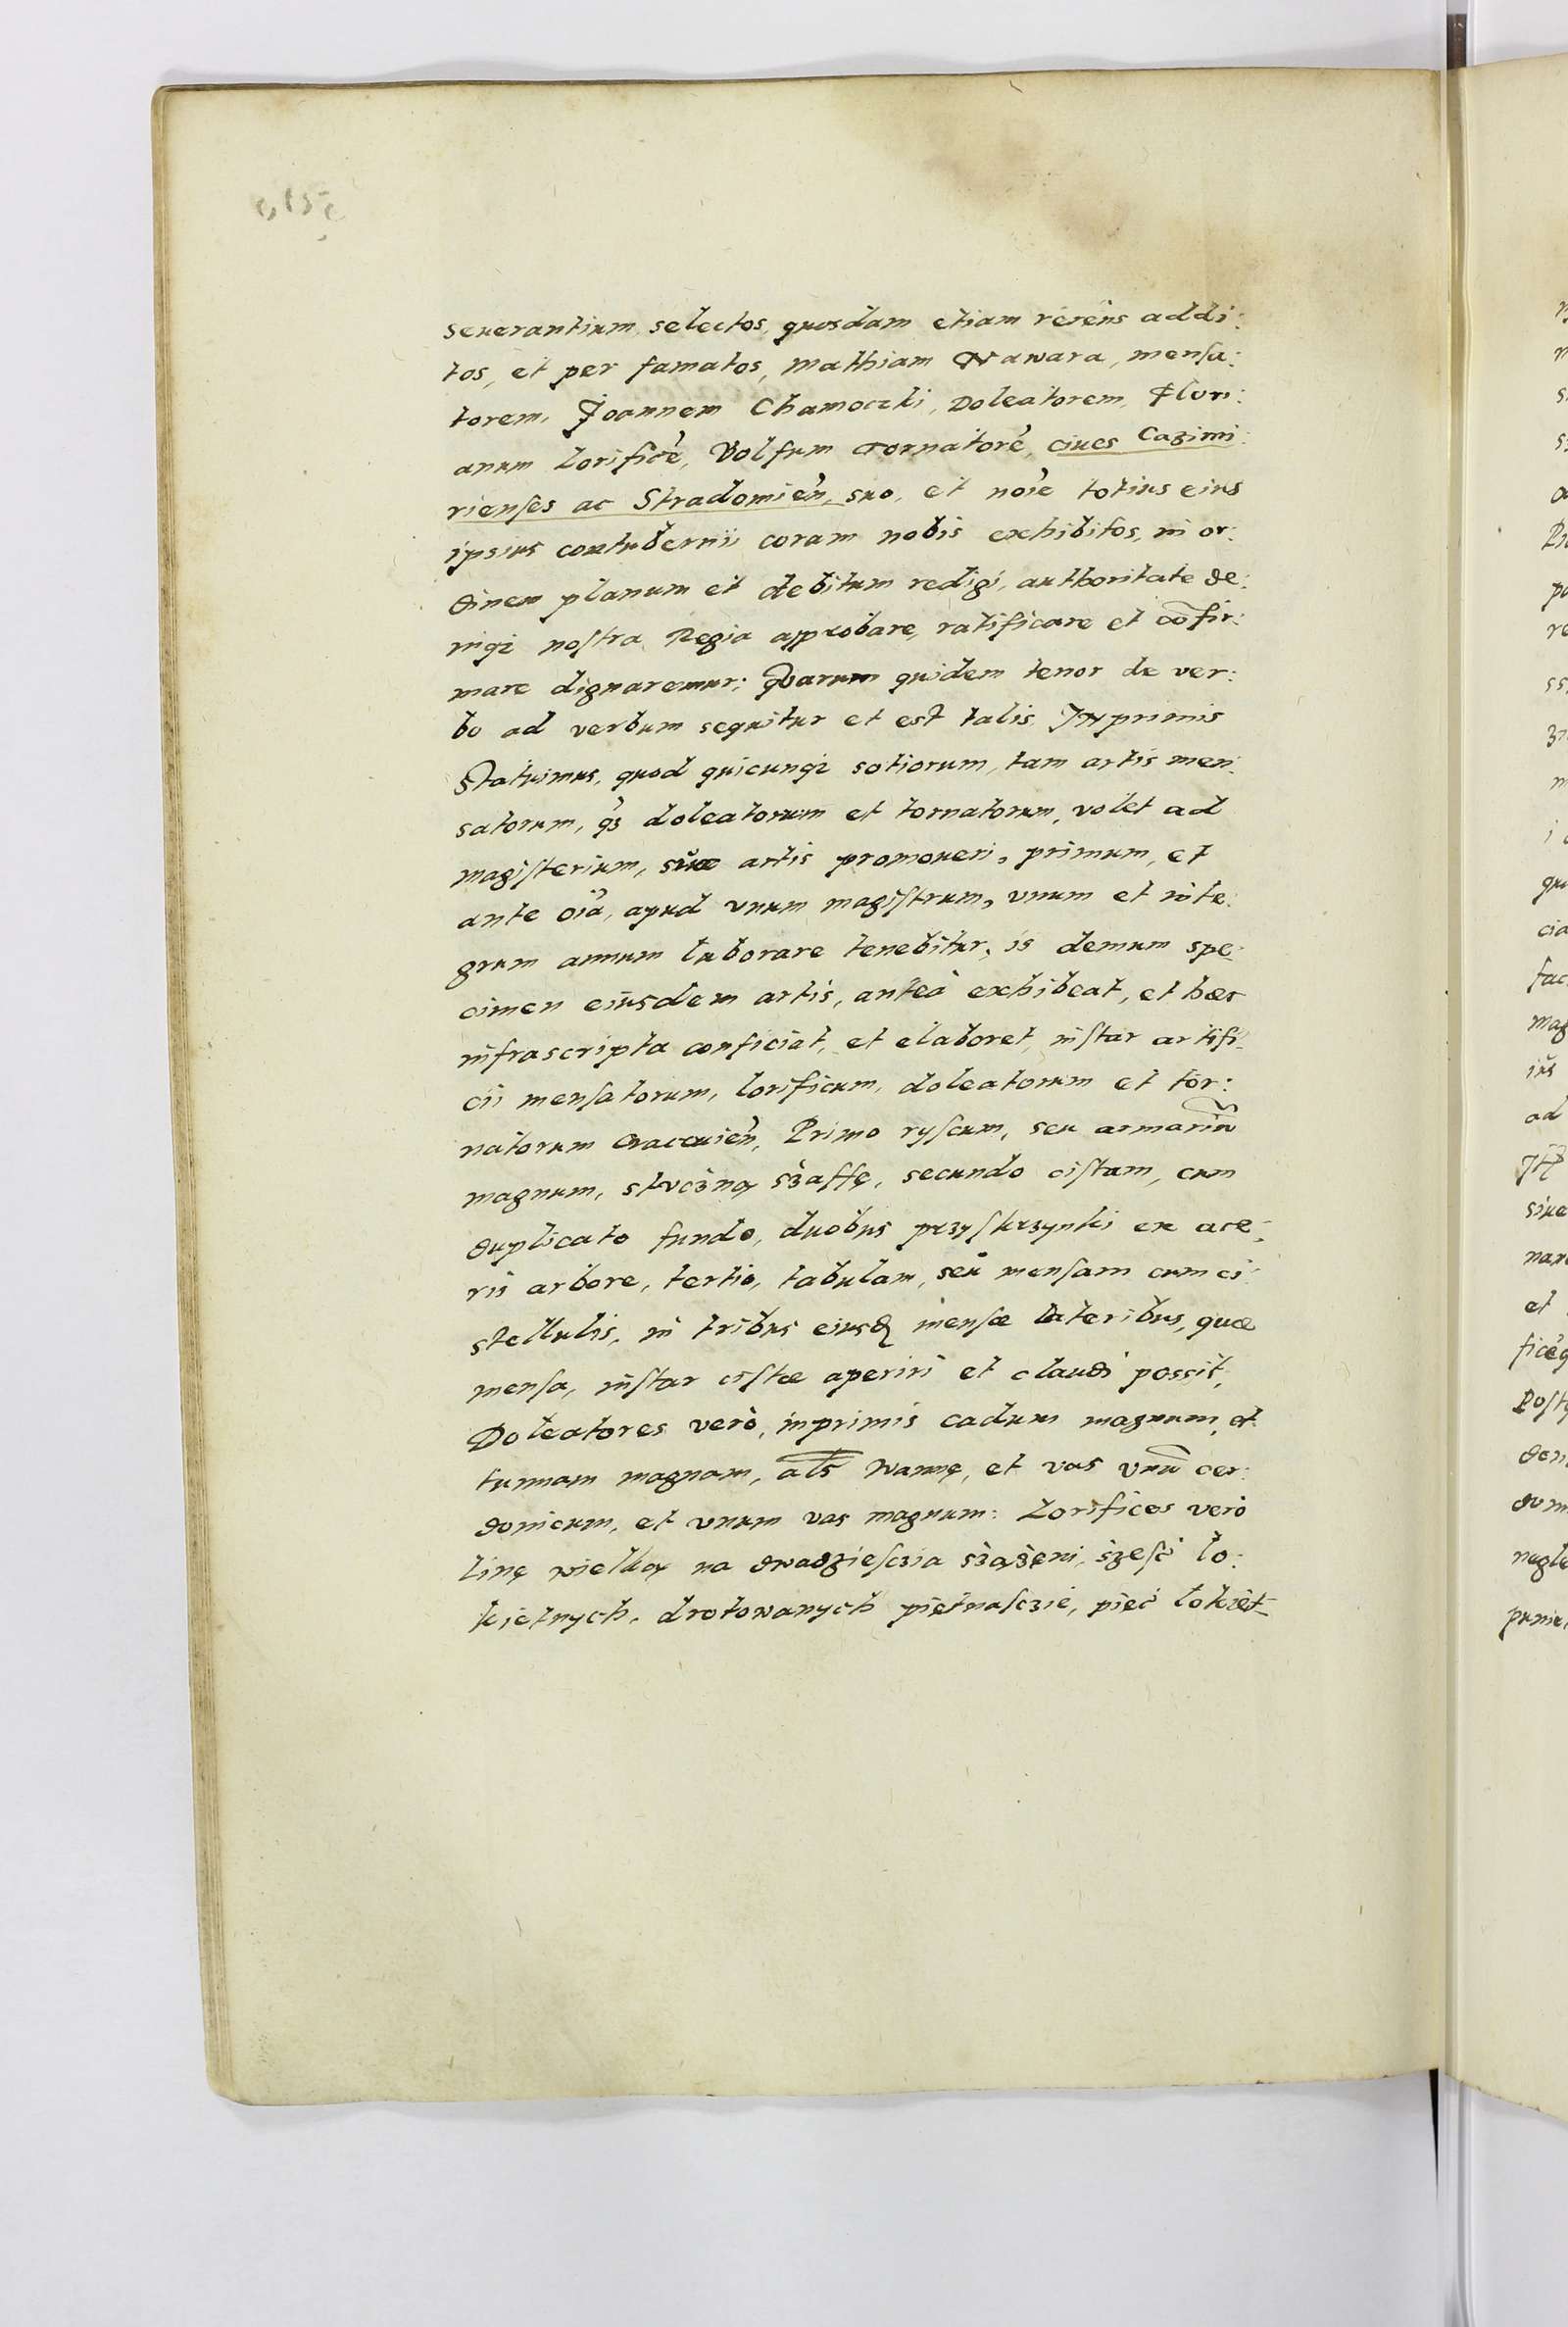 seuerantium, selectos, quosdam etiam recens addi:
tos, et per famatos, Mathiam Nawara, mensa:
torem, Joannem Chamoczki, Doleatorem, Flori:
anum Lorificē, Volfum Tornatorē, ciues Cazimi:
rienses ac Stradomień, suo, et noīe totius eius
ipsius contubernij coram nobis exhibitos, in or:
dinem planum et debitum redigi, authoritate de:
niq₃ nostra Regia approbare, ratificare et cōfir:
mare dignaremur: Quarum quidem tenor de ver:
bo ad verbum sequitur et est talis. Inprimis
Statuimus, quod quicunq₃ sotiorum, tam artis men:
satorum, q₃ doleatorum et tornatorum, volet ad
magisterium, suæ artis promoueri, primum, et
ante oīa, apud vnum magistrum, vnum et inte:
grum annum laborare tenebitur, is demum spe:
cimen eiusdem artis, anteà exhibeat, et hæc
infrascripta conficiat, et elaboret, instar artifi:
cij mensatorum, lorificum, doleatorum et tor:
natorum Cracouień, Primo ryscum, seu armariū
magnum, stuczną szaffę, secundo cistam, cum
duplicato fundo, duobus przyskrzynki ex ace:
ris arbore, tertio, tabulam, seu mensam cum ci:
stellulis, in tribus eiusd mensæ lateribus, quæ
mensa, instar cistæ aperiri et claudi possit,
Doleatores verò, inprimis cadum magnum, et
tunnam magnam, als wannę, et vas vnū cer:
donicum, et vnum vas magnum: Lorifices verò
linę wielką na dwadzieścia sążeni, sześć ło:
kietnych, drotowanych piętnasczie, pięć łokiet-